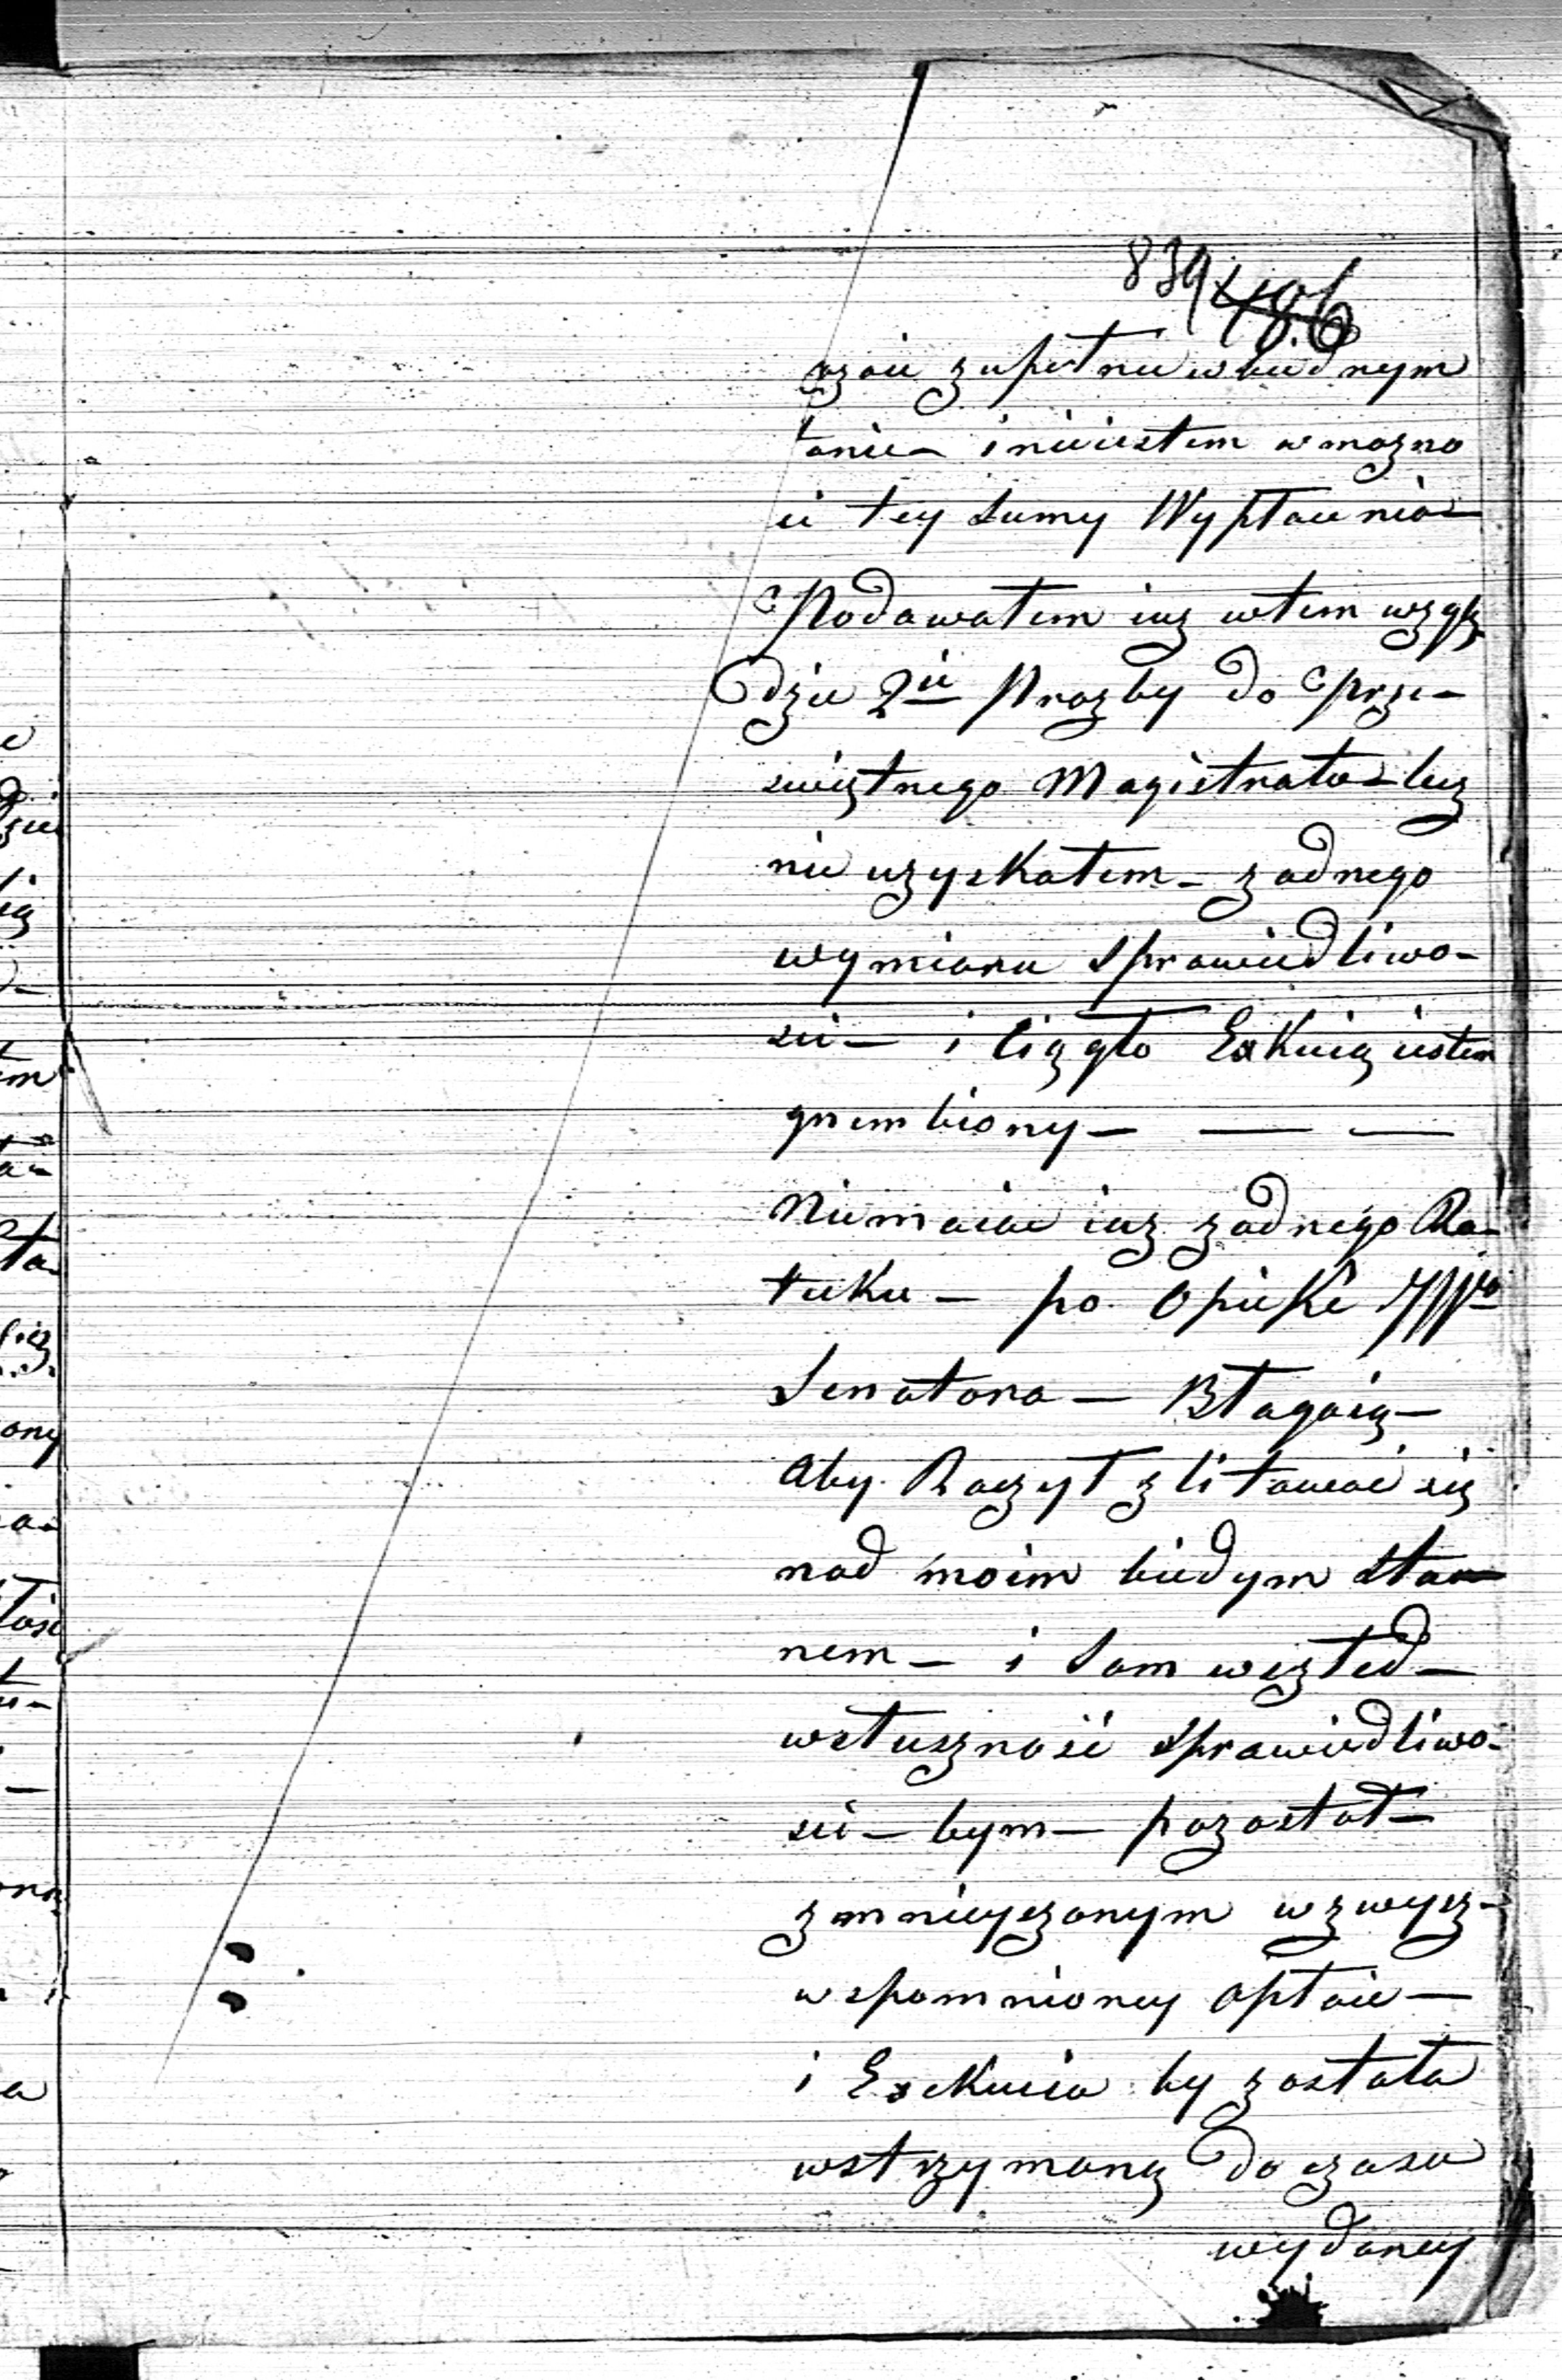 839 486
szcie zupełnie wbiednym
tanie – i nieiestem wmozno
ci tey Sumy Wypłacenia –
Podawałem iuz wtem wzglę
dzie 2ie Prozby do Prze–
swiętnego Magistratu – lecz
nie uzyskałem – zadnego
wymiaru Sprawiedliwo–
sci – i Ciągło Exkucią iestem
gnembiony – — —
Niemaiac iuz zadnego Ra–
tuku – po Opieke JWo
Senatora – Błagaią –
Aby Raczył zlitowac się
nad moim biedym Sta
nem – i Sam weszled –
wsłuszność Sprawiedliwo–
sci – bym – pozostał –
zmnieyszonym wzwysz–
wspomnioney opłacie –
i Exekucia by została
wstrzymaną do czasu
wydaney